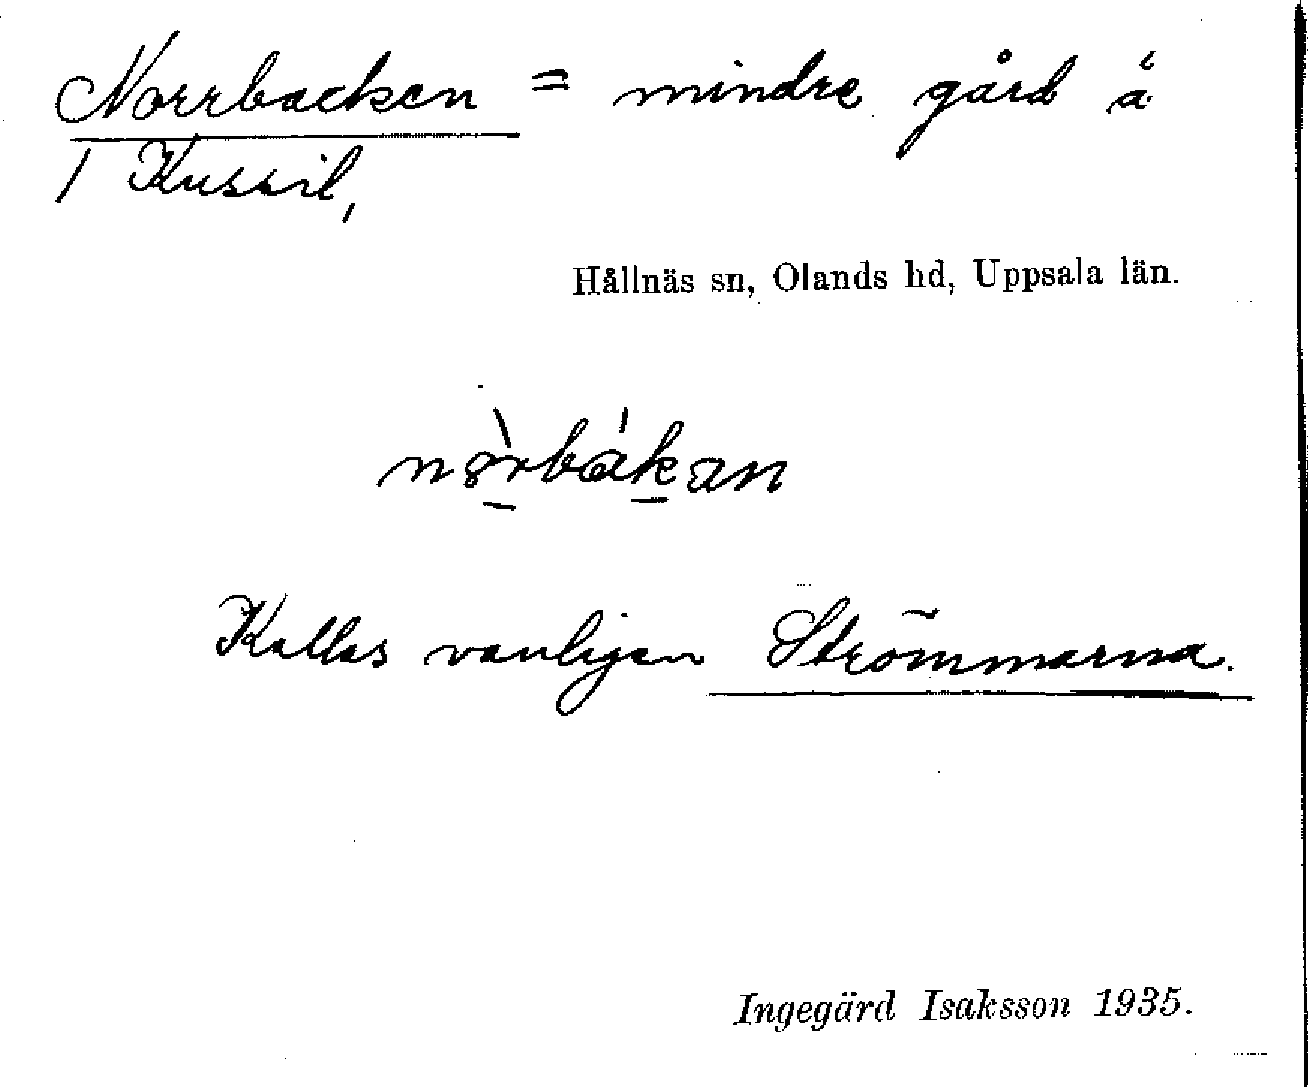 Norrbacken = mindre gård å
1 Kussil,
Hållnäs sn, Olands hd, Uppsala län.
nòrbákan
Kallas vanligen Strömmarna.
Ingegärd Isaksson 1935.